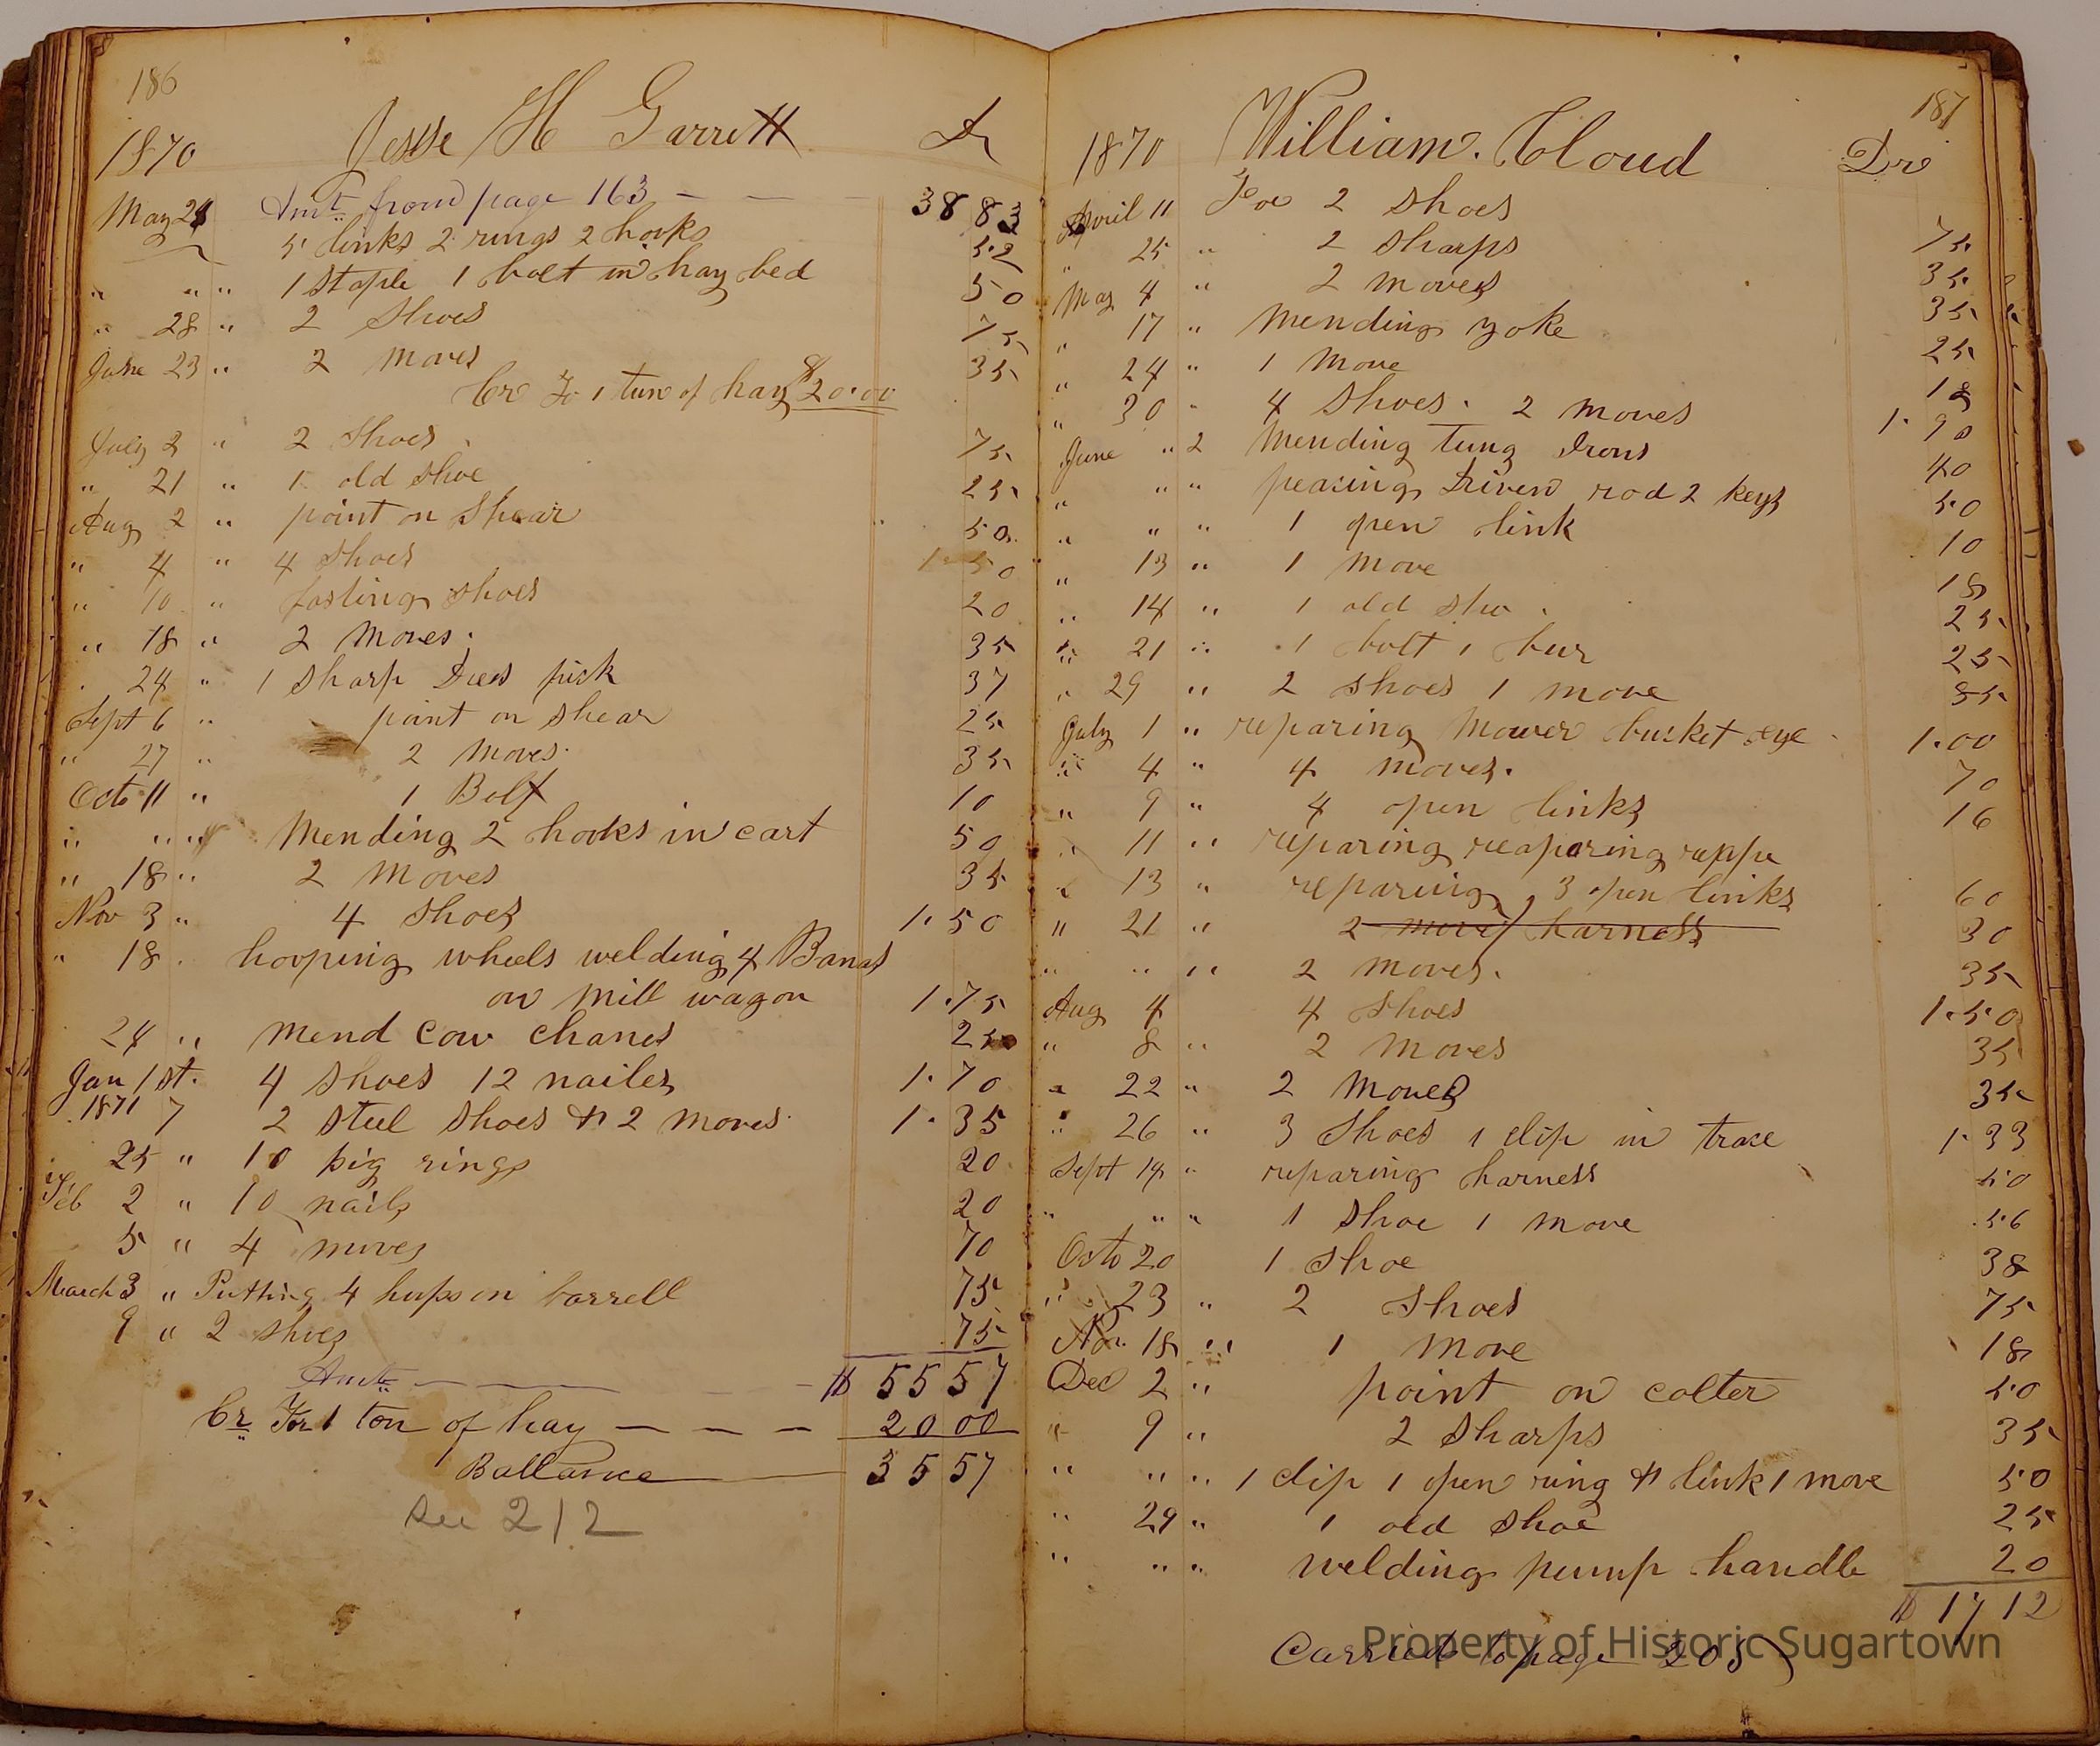 186
1870 Jesse H Garrett Dr
May 24 Amt from page 163 — — — 38 83
5 links 2 rings 2 hooks 52
" " " 1 staple 1 bolt in hay bed 50
" 28 " 2 Shoes 75
June 23 " 2 moves 35
Cr To 1 tun of hay $20.00
July 2 " 2 Shoes 75
" 21 " 1 old shoe 25
Aug 2 " point on Shear 50
" 4 " 4 Shoes 1.50
" 10 " fasting shoes 20
" 18 " 2 Moves 35
" 24 " 1 sharp pick 37
Sept 6 " point on shear 25
" 27 " 2 moves 35
Octo 11 " 1 Bolt 10
" " " Mending 2 hooks in cart 50
" 18 " 2 Moves 35
Nov 3 " 4 shoes 1.50
" 18 hooping wheels welding 4 Bands
on mill wagon 1.75
24 " mend cow chanes 25
Jan 1st. 4 shoes 12 nailes 1.70
1871 7 2 steel shoes & 2 moves 1.35
25 " 10 pig rings 20
Feb 2 " 10 nails 20
5 " 4 moves 70
March 3 " Putting 4 hups on barrell 75
9 " 2 shoes 75
Amt — — — $ 55 57
Cr For 1 ton of hay — — — 20 00
Ballance 35 57
see 212
187
1870 William. Cloud Dr
April 11 For 2 shoes 75
" 25 " 2 sharps 35
May 4 " 2 moves 35
" 17 " Mending yoke 25
" 24 " 1 Move 18
" 30 " 4 Shoes. 2 moves 1.90
June " 2 Mending tung Irons 40
" " " rod 2 keys 50
" " " 1 open link 10
" 13 " 1 Move 18
" 14 " 1 old sho 25
" 21 " 1 bolt 1 bur 25
" 29 " 2 shoes 1 move 85
July 1 " reparing Mower bucket eye 1.00
" 4 " 4 moves. 70
" 9 " 4 open links 16
" 11 " reparing reaparing 60
" 13 " reparing, 3 open links 30
" 21 " 2 moves harness
" " " 2 moves. 35
Aug 4 4 Shoes 1.50
" 8 " 2 Moves 35
" 22 " 2 Moves 35
" 26 " 3 Shoes 1 clip in trace 1.33
Sept 14 " reparing harness 50
" " " 1 Shoe 1 move 56
Octo 20 1 Shoe 38
" 23 " 2 Shoes 75
Nov. 18 " 1 Move 18
Dec 2 " point on colter 50
" 9 " 2 Sharps 35
" " " 1 clip 1 open ring & link 1 move 50
" 29 " 1 old shoe 25
" " " welding pump handle 20
$ 17 12
Carried to page 205
Property of Historic Sugartown